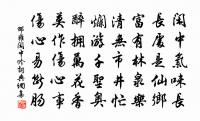 閑中氣味長
長處是仙鄉
富有林泉樂
清無市井忙
爛游千聖奧
醉擁萬花香
莫作傷心事
傷心易斷腸
邵雍閑中吟詞典網集